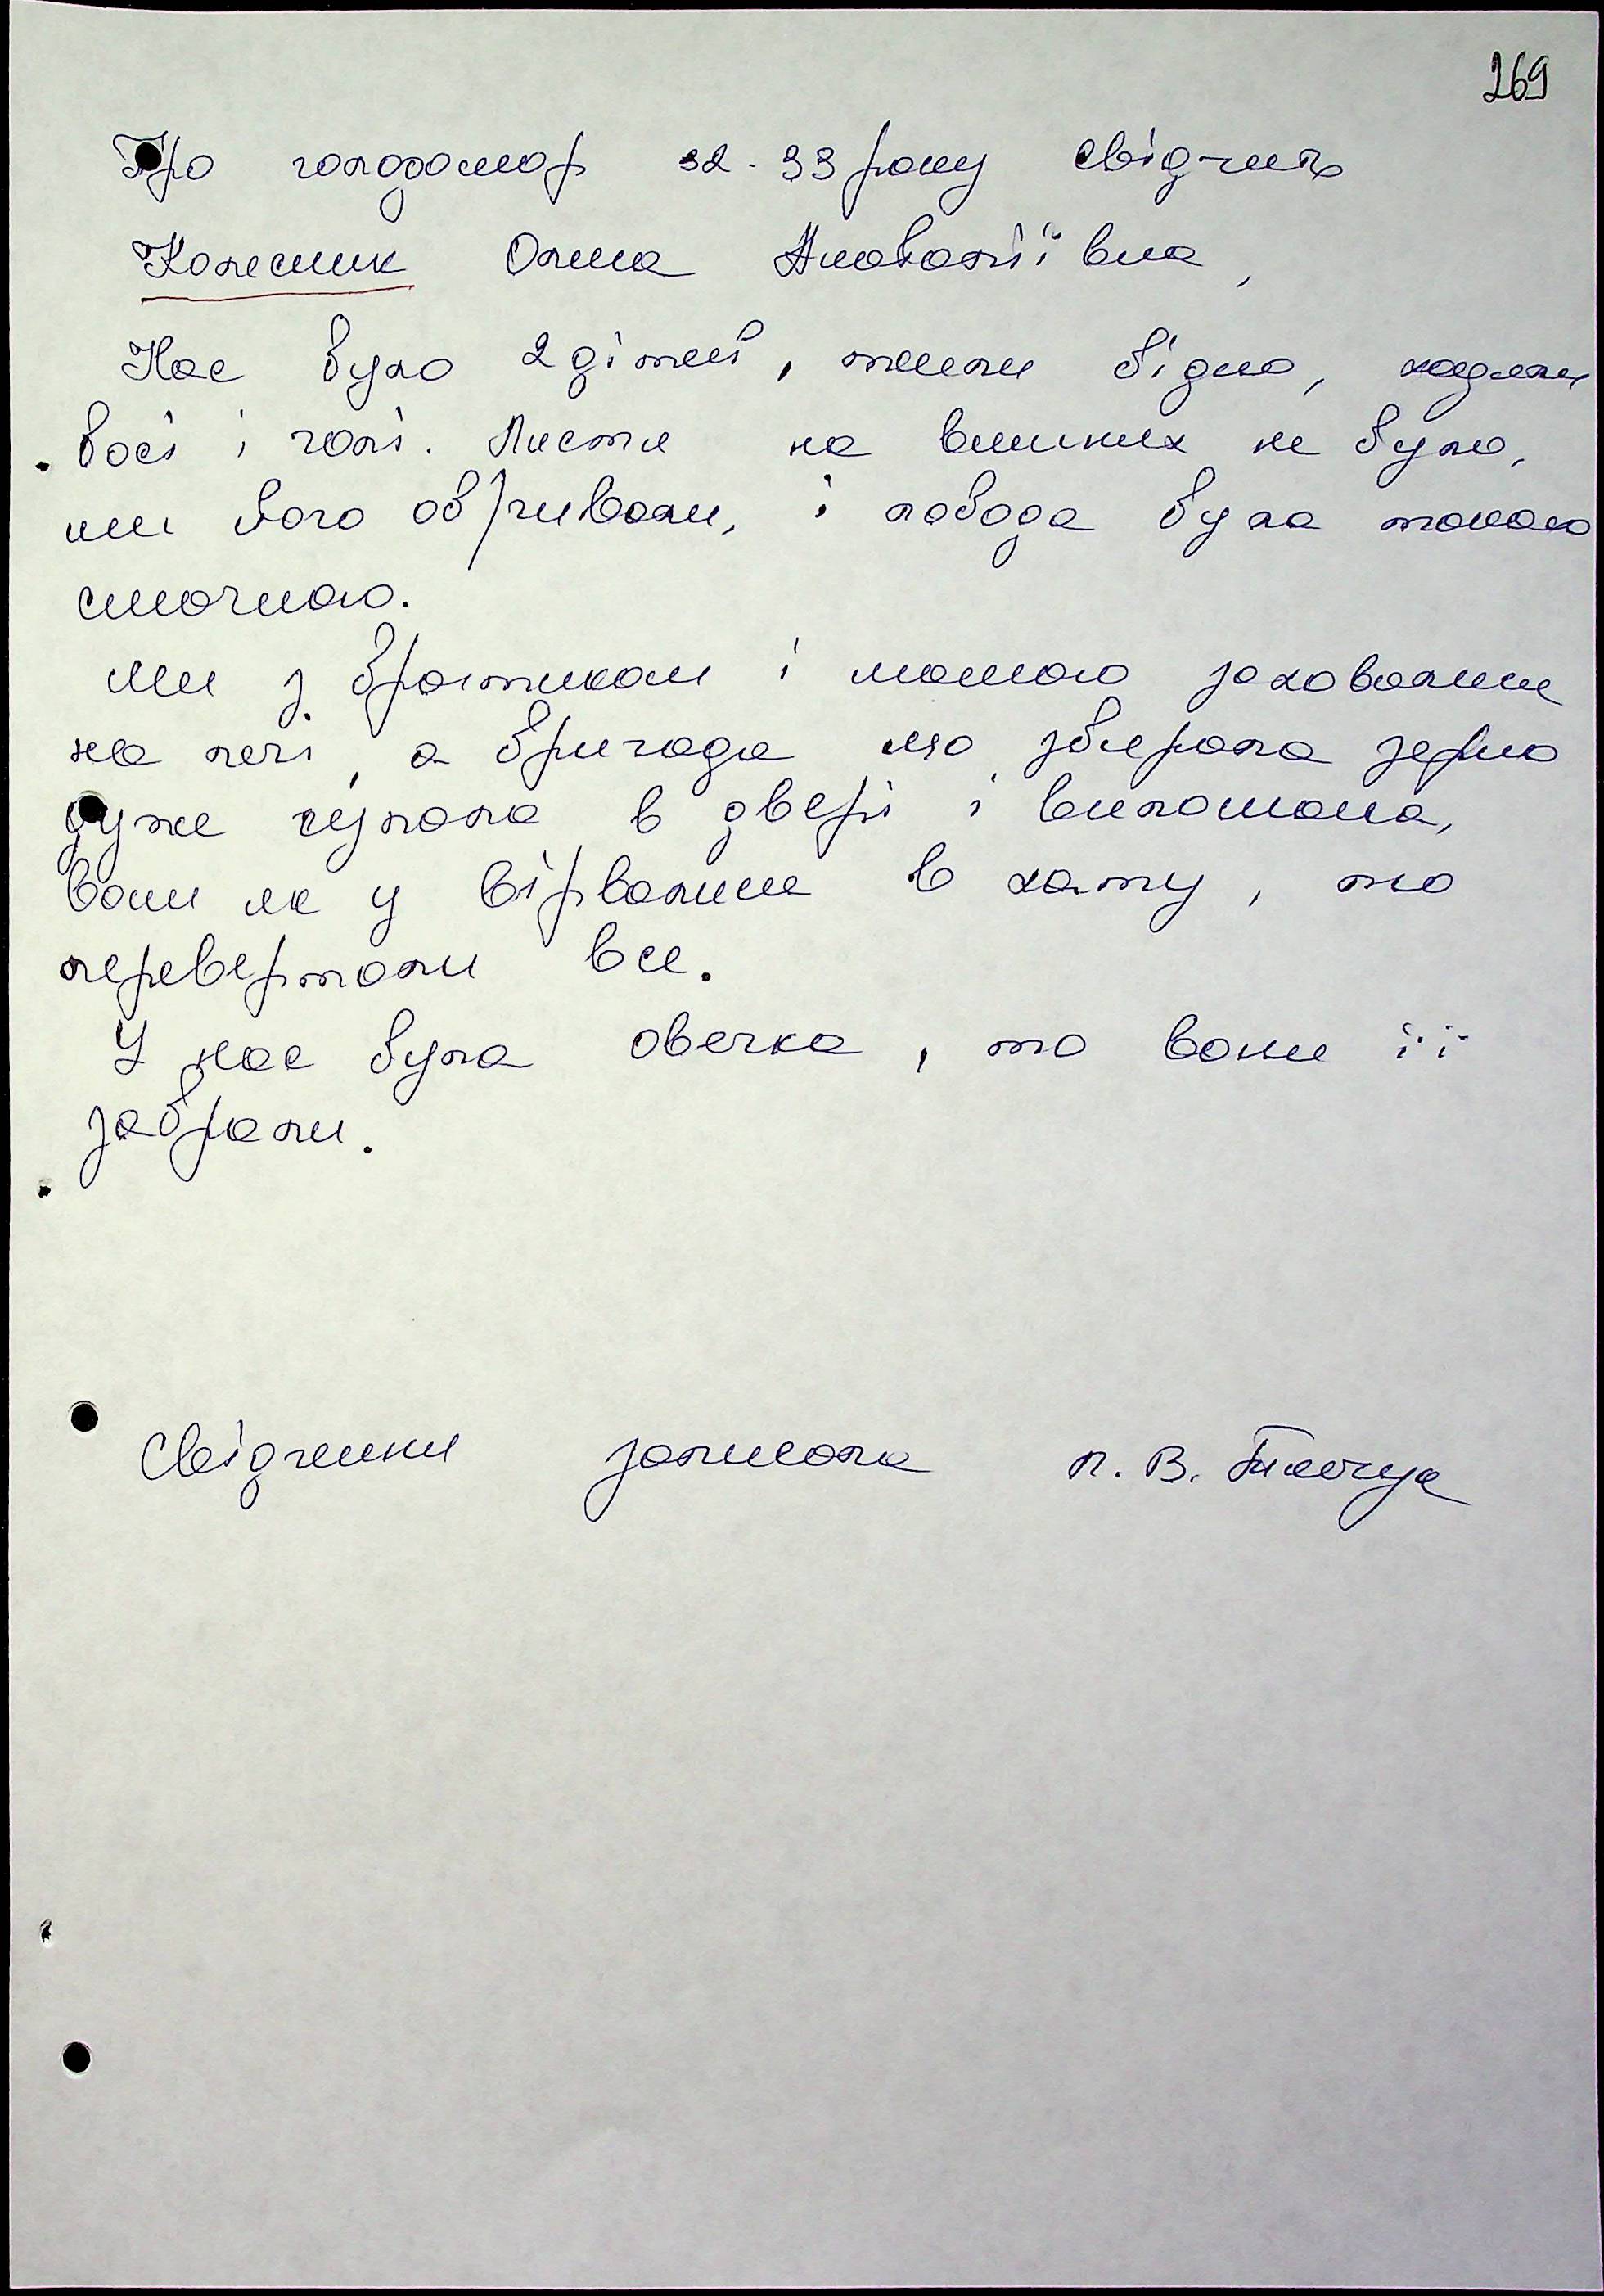 269
Про голодомор 32-33 року свідчить
Колесник Олена
Нас було 2 дітей, жили бідно, ходили
босі і голі. Листя на вишнях не було,
ми його обривали, і лобода була такою
смачною.
Ми з братиком і мамою заховалися
на печі, а бригада що збирала зерно
дуже гупала в двері і виламала,
вони як у вірвалися в хату, то
перевертали все.
У нас була овечка, то вони її
забрали.
Свідчення записала п. В.